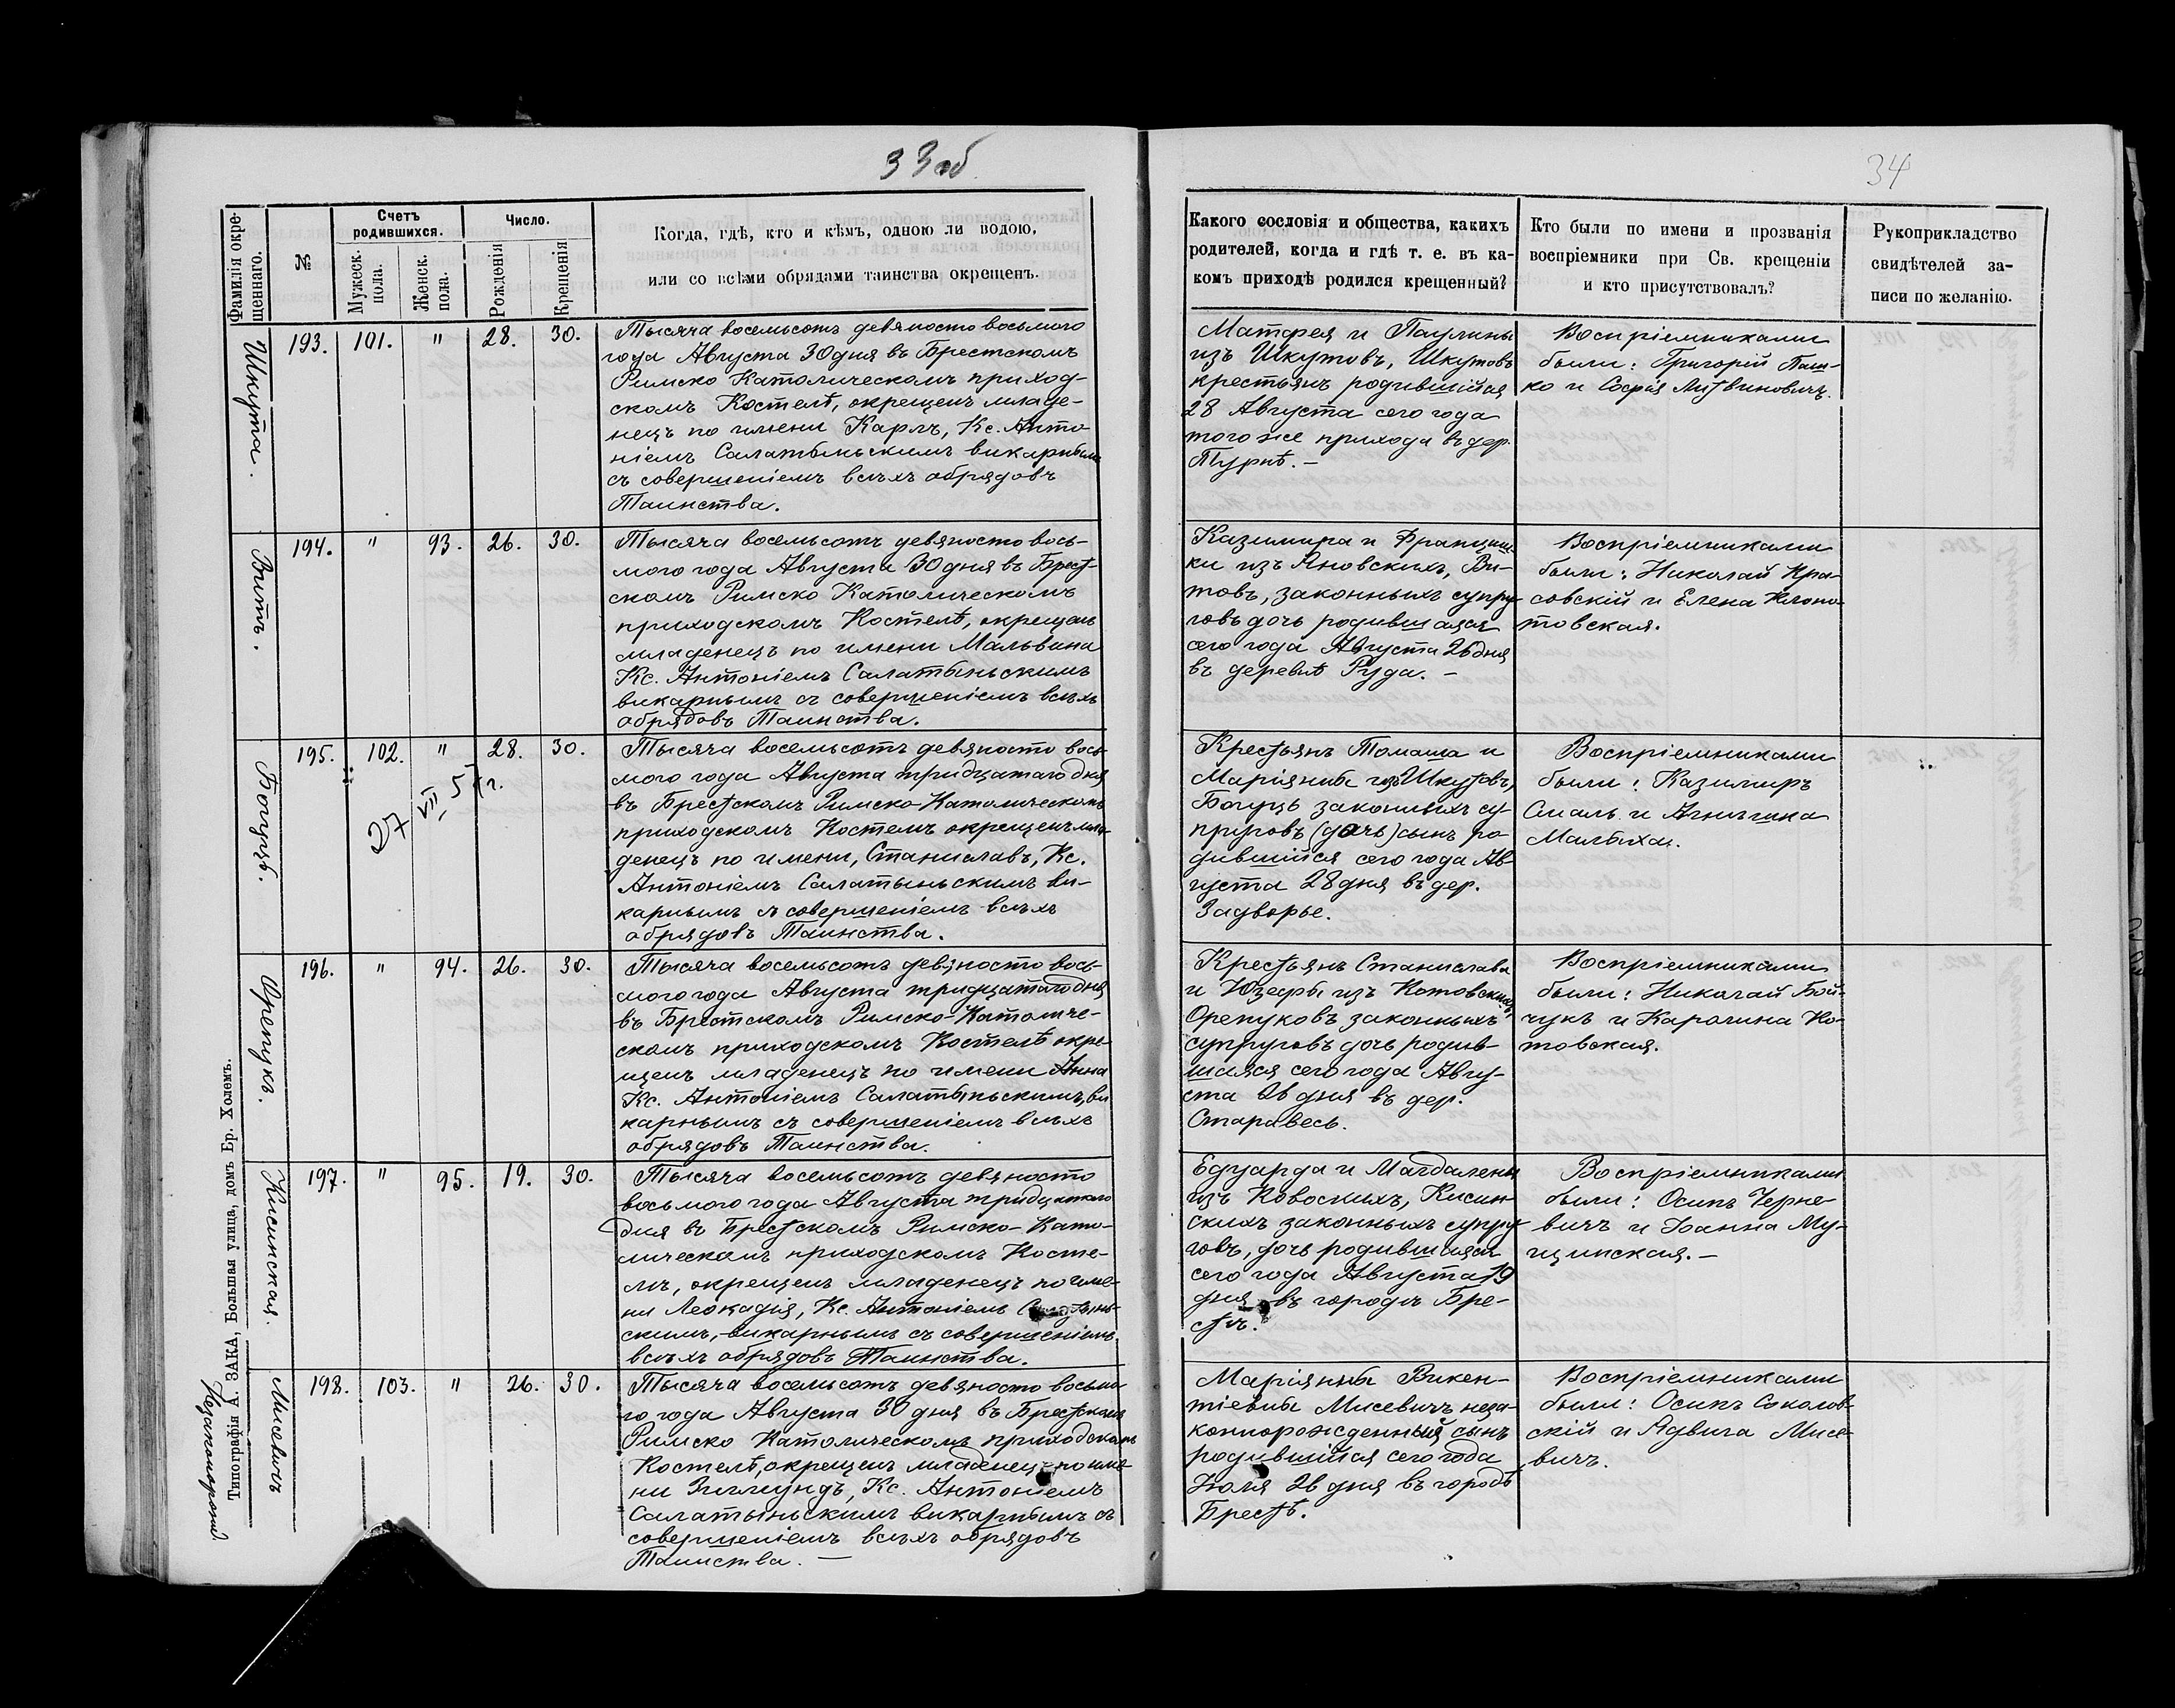 33 об
34
Фамилія окре-
щеннаго.
№
Счетъ
родившихся.
Мужеск.
пола.
Женск.
пола.
Число.
Рожденія
Крещенія
Когда, гдѣ, кто и кѣмъ, одною ли водою,
или со всѣми обрядами таинства окрещенъ.
Какого сословія и общества, какихъ
родителей, когда и гдѣ т. е. въ ка-
комъ приходѣ родился крещенный?
Кто были по имени и прозванія
воспріемники при Св. крещеніи
и кто присутствовалъ?
Рукоприкладство
свидѣтелей за-
писи по желанію.
Шкута.
193. 101. " 28. 30.
Тысяча восемьсотъ девяносто восьмого
года Августа 30 дня въ Брестскомъ
Римско Католическомъ приход-
скомъ Костелѣ, окрещенъ младе-
нецъ по имени Карлъ, Кс. Анто-
ніемъ Салатыньскимъ викарнымъ
съ совершеніемъ всѣхъ обрядовъ
Таинства.
Матфея и Паулины
изъ Шкутовъ, Шкутовъ
крестьянъ родившійся
28 Августа сего года
того же прихода въ дер.
Турнѣ. –
Воспріемниками
были: Григорій Паш-
ко и Софія Литвиновичъ.
Витъ.
194. " 93. 26. 30.
Тысяча восемьсотъ девяносто вось-
мого года Августа 30 дня въ Брест-
скомъ Римско Католическомъ
приходскомъ Костелѣ, окрещенъ
младенецъ по имени Мальвина
Кс. Антоніемъ Салатыньскимъ
викарнымъ съ совершеніемъ всѣхъ
обрядовъ Таинства.
Казимира и Францишки
ки изъ Яновскихъ, Ви-
товъ, законныхъ супру-
говъ дочь родившаяся
сего года Августа 26 дня
въ деревнѣ Руда. –
Воспріемниками
были: Николай Кра-
совскій и Елена Клопо-
товская.
Богуцъ.
195. 102. " 28. 30.
27 VIII 57 г.
Тысяча восемьсотъ девяносто вось-
мого года Августа тридцатаго дня
въ Брестскомъ Римско-Католическомъ
приходскомъ Костелѣ окрещенъ мла-
денецъ по имени, Станиславъ, Кс.
Антоніемъ Салатыньскимъ ви-
карнымъ съ совершеніемъ всѣхъ
обрядовъ Таинства.
Крестьянъ Томаша и
Маріянны изъ Шкутовъ,
Богуцъ законныхъ су-
пруговъ (дочь) сынъ ро-
дившійся сего года Ав-
густа 28 дня въ дер.
Задворье.
Воспріемниками
были: Казимиръ
Смаль и
Орепукъ.
196. " 94. 26. 30.
Тысяча восемьсотъ девяносто вось-
мого года Августа тридцатаго дня
въ Брестскомъ Римско-Католиче-
скомъ приходскомъ Костелѣ окре-
щенъ младенецъ по имени Анна
Кс. Антоніемъ Салатыньскимъ, ви
карнымъ съ совершеніемъ всѣхъ
обрядовъ Таинства.
Крестьянъ Станислава
и Юзефы изъ Котовскихъ,
Орепуковъ законныхъ
супруговъ дочь родив-
шаяся сего года Авгу-
ста 26 дня въ дер.
Старавесь.
Воспріемниками
были: Николай Бой-
чукъ и Каролина Ко-
товская.
Кисинская.
197. " 95. 19. 30.
Тысяча восемьсотъ девяносто
восьмого года Августа тридцатаго
дня въ Брестскомъ Римско-Като-
лическомъ приходскомъ Косте-
лѣ, окрещенъ младенецъ по име-
ни Леокадія, Кс. Антоніемъ Салатынь-
скимъ, викарнымъ съ совершеніемъ
всѣхъ обрядовъ Таинства.
Едуарда и Магдалены
изъ Ковоскихъ, Кисин-
скихъ законныхъ супру-
говъ, дочь родившаяся
сего года Августа 19
дня въ городѣ Бре-
стѣ.
Воспріемниками
были: Осипъ Черне-
вичъ и Іоанна Му-
щинская. –
Мисевичъ
198. 103. " 26. 30.
Тысяча восемьсотъ девяносто восьмо-
го года Августа 30 дня въ Брестскомъ
Римско Католическомъ приходскомъ
Костелѣ, окрещенъ младенецъ по име-
ни Зигмундъ, Кс. Антоніемъ
Салатыньскимъ викарнымъ съ
совершеніемъ всѣхъ обрядовъ
Таинства. –
Маріянны Викен-
тіевны Мисевичъ неза-
коннорожденный сынъ
родившійся сего года
Іюля 26 дня въ городѣ
Брестѣ.
Воспріемниками
были: Осипъ Соколов-
скій и Ядвига Мисе-
вичъ.
Типографія А. ЗАКА, Большая улица, домъ Ер. Холемъ.